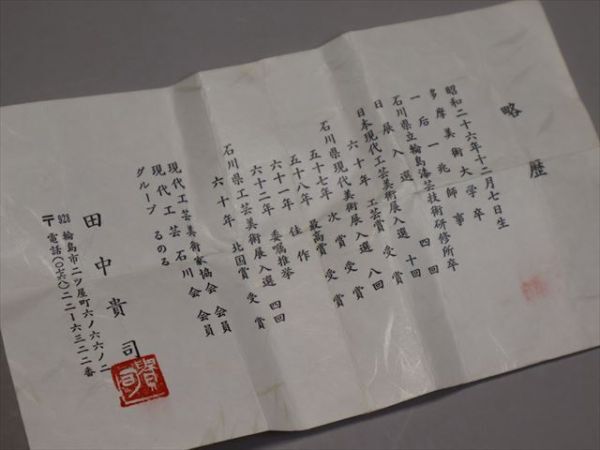 略歴
昭和二十六年十二月七日生
多摩美術大学卒
一后一兆師事
石川県立輪島漆芸技術研修所卒
日展入選 四回
日本現代工芸美術展入選 十回
六十年 工芸賞 受賞
石川県現代美術展入選 八回
五十七年 最高賞
五十八年 佳作
六十年 次賞 受賞
六十一年 委嘱推挙
石川県工芸美術展入選 四回
六十年 北国賞 受賞
現代工芸美術家協会 会員
現代工芸石川会 会員
グループ るのる
田中貴司
〒928 輪島市二ツ屋町六ノ六六ノ二
電話(〇七六八)二二-六三二二番